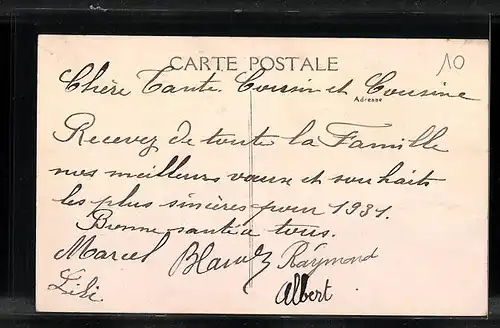 CARTE POSTALE
10
Chère Tante Cousin et Cousine
Adresse
Recevez de toute la Famille
nos meilleurs vœux et souhaits
les plus sincères pour 1931.
Bonne santé à tous.
Marcel Raymond
Lili Albert